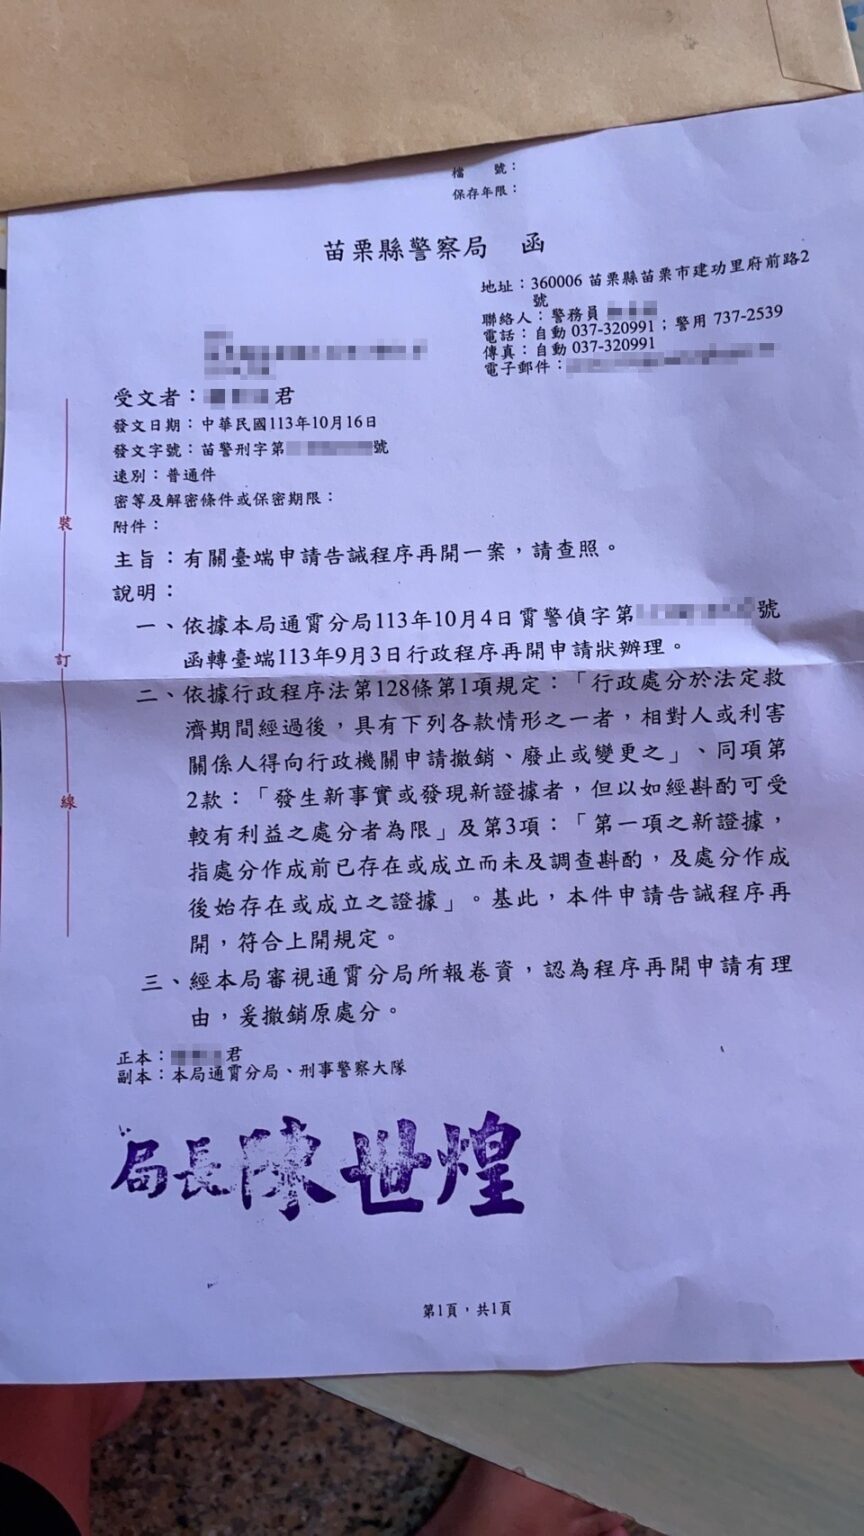 檔　號：
保存年限：
苗栗縣警察局　函
地址：360006 苗栗縣苗栗市建功里府前路2
號
聯絡人：警務員
電話：自動 037-320991；警用 737-2539
傳真：自動 037-320991
電子郵件：
受文者：君
發文日期：中華民國113年10月16日
發文字號：苗警刑字第號
速別：普通件
密等及解密條件或保密期限：
附件：
主旨：有關臺端申請告誡程序再開一案，請查照。
說明：
一、依據本局通霄分局113年10月4日霄警偵字第號
函轉臺端113年9月3日行政程序再開申請狀辦理。
二、依據行政程序法第128條第1項規定：「行政處分於法定救
濟期間經過後，具有下列各款情形之一者，相對人或利害
關係人得向行政機關申請撤銷、廢止或變更之」、同項第
2款：「發生新事實或發現新證據者，但以如經斟酌可受
較有利益之處分者為限」及第3項：「第一項之新證據，
指處分作成前已存在或成立而未及調查斟酌，及處分作成
後始存在或成立之證據」。基此，本件申請告誡程序再
開，符合上開規定。
三、經本局審視通霄分局所報卷資，認為程序再開申請有理
由，爰撤銷原處分。
正本：君
副本：本局通霄分局、刑事警察大隊
局長陳世煌
第1頁，共1頁
裝
訂
線